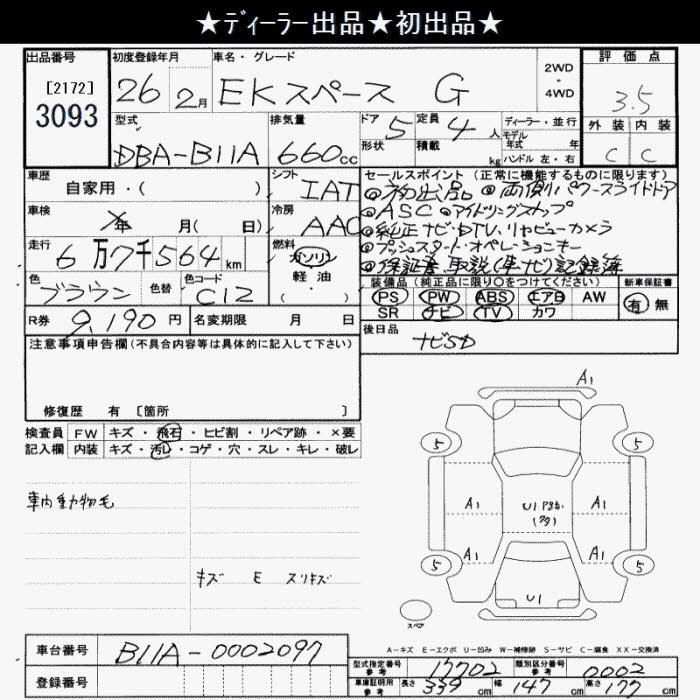 ★ディーラー出品★初出品★
出品番号 初度登録年月 車名・グレード 評価点
[2172] 26 2月 EKスペース G 2WD・4WD 3.5
3093
外装 内装
C C
型式 排気量 ドア 定員 ディーラー・並行
DBA-B11A 660cc 5 4人 モデル年式 年
形状 積載 kg ハンドル 左・右
車歴 シフト セールスポイント (正常に機能するものに限ります)
自家用・( ) IAT ◎初出品 ◎両側パワースライドドア
車検 冷房 ◎ASC ◎アイドリングストップ
年 月( 日) AAC ◎純正ナビ・DTV、リヤビューカメラ
走行 燃料 ◎プッシュスタート・オペレーションキー
6万7千564km ガソリン ◎保証書 取説(車ナビ)記録簿
色 色替 色コード 軽油 装備品 (純正品に限り○をつけてください) 新車保証書
ブラウン C12 ・( ) PS PW ABS エアB AW 有 無
R券 9,190円 名変期限 月 日 SR ナビ TV カワ
注意事項申告欄(不具合内容等は具体的に記入して下さい) 後日品
ナビSD
修復歴 有 [箇所 ]
検査員 FW キズ・飛石・ヒビ割・リペア跡・×要
記入欄 内装 キズ・汚レ・コゲ・穴・スレ・キレ・破レ
A1
5 5
車内動物毛
A1 A1
U1
キズ E スリキズ
A1 A1
5 5
U1
スペア
A-キズ E-エクボ U-凹み W-補修跡 S-サビ C-腐食 XX-交換済
車台番号 B11A-0002097
型式指定番号 参考 17702 類別区分番号 参考 0002
登録番号
車庫証明用 参考 長さ 339cm 幅 147cm 高さ 177cm